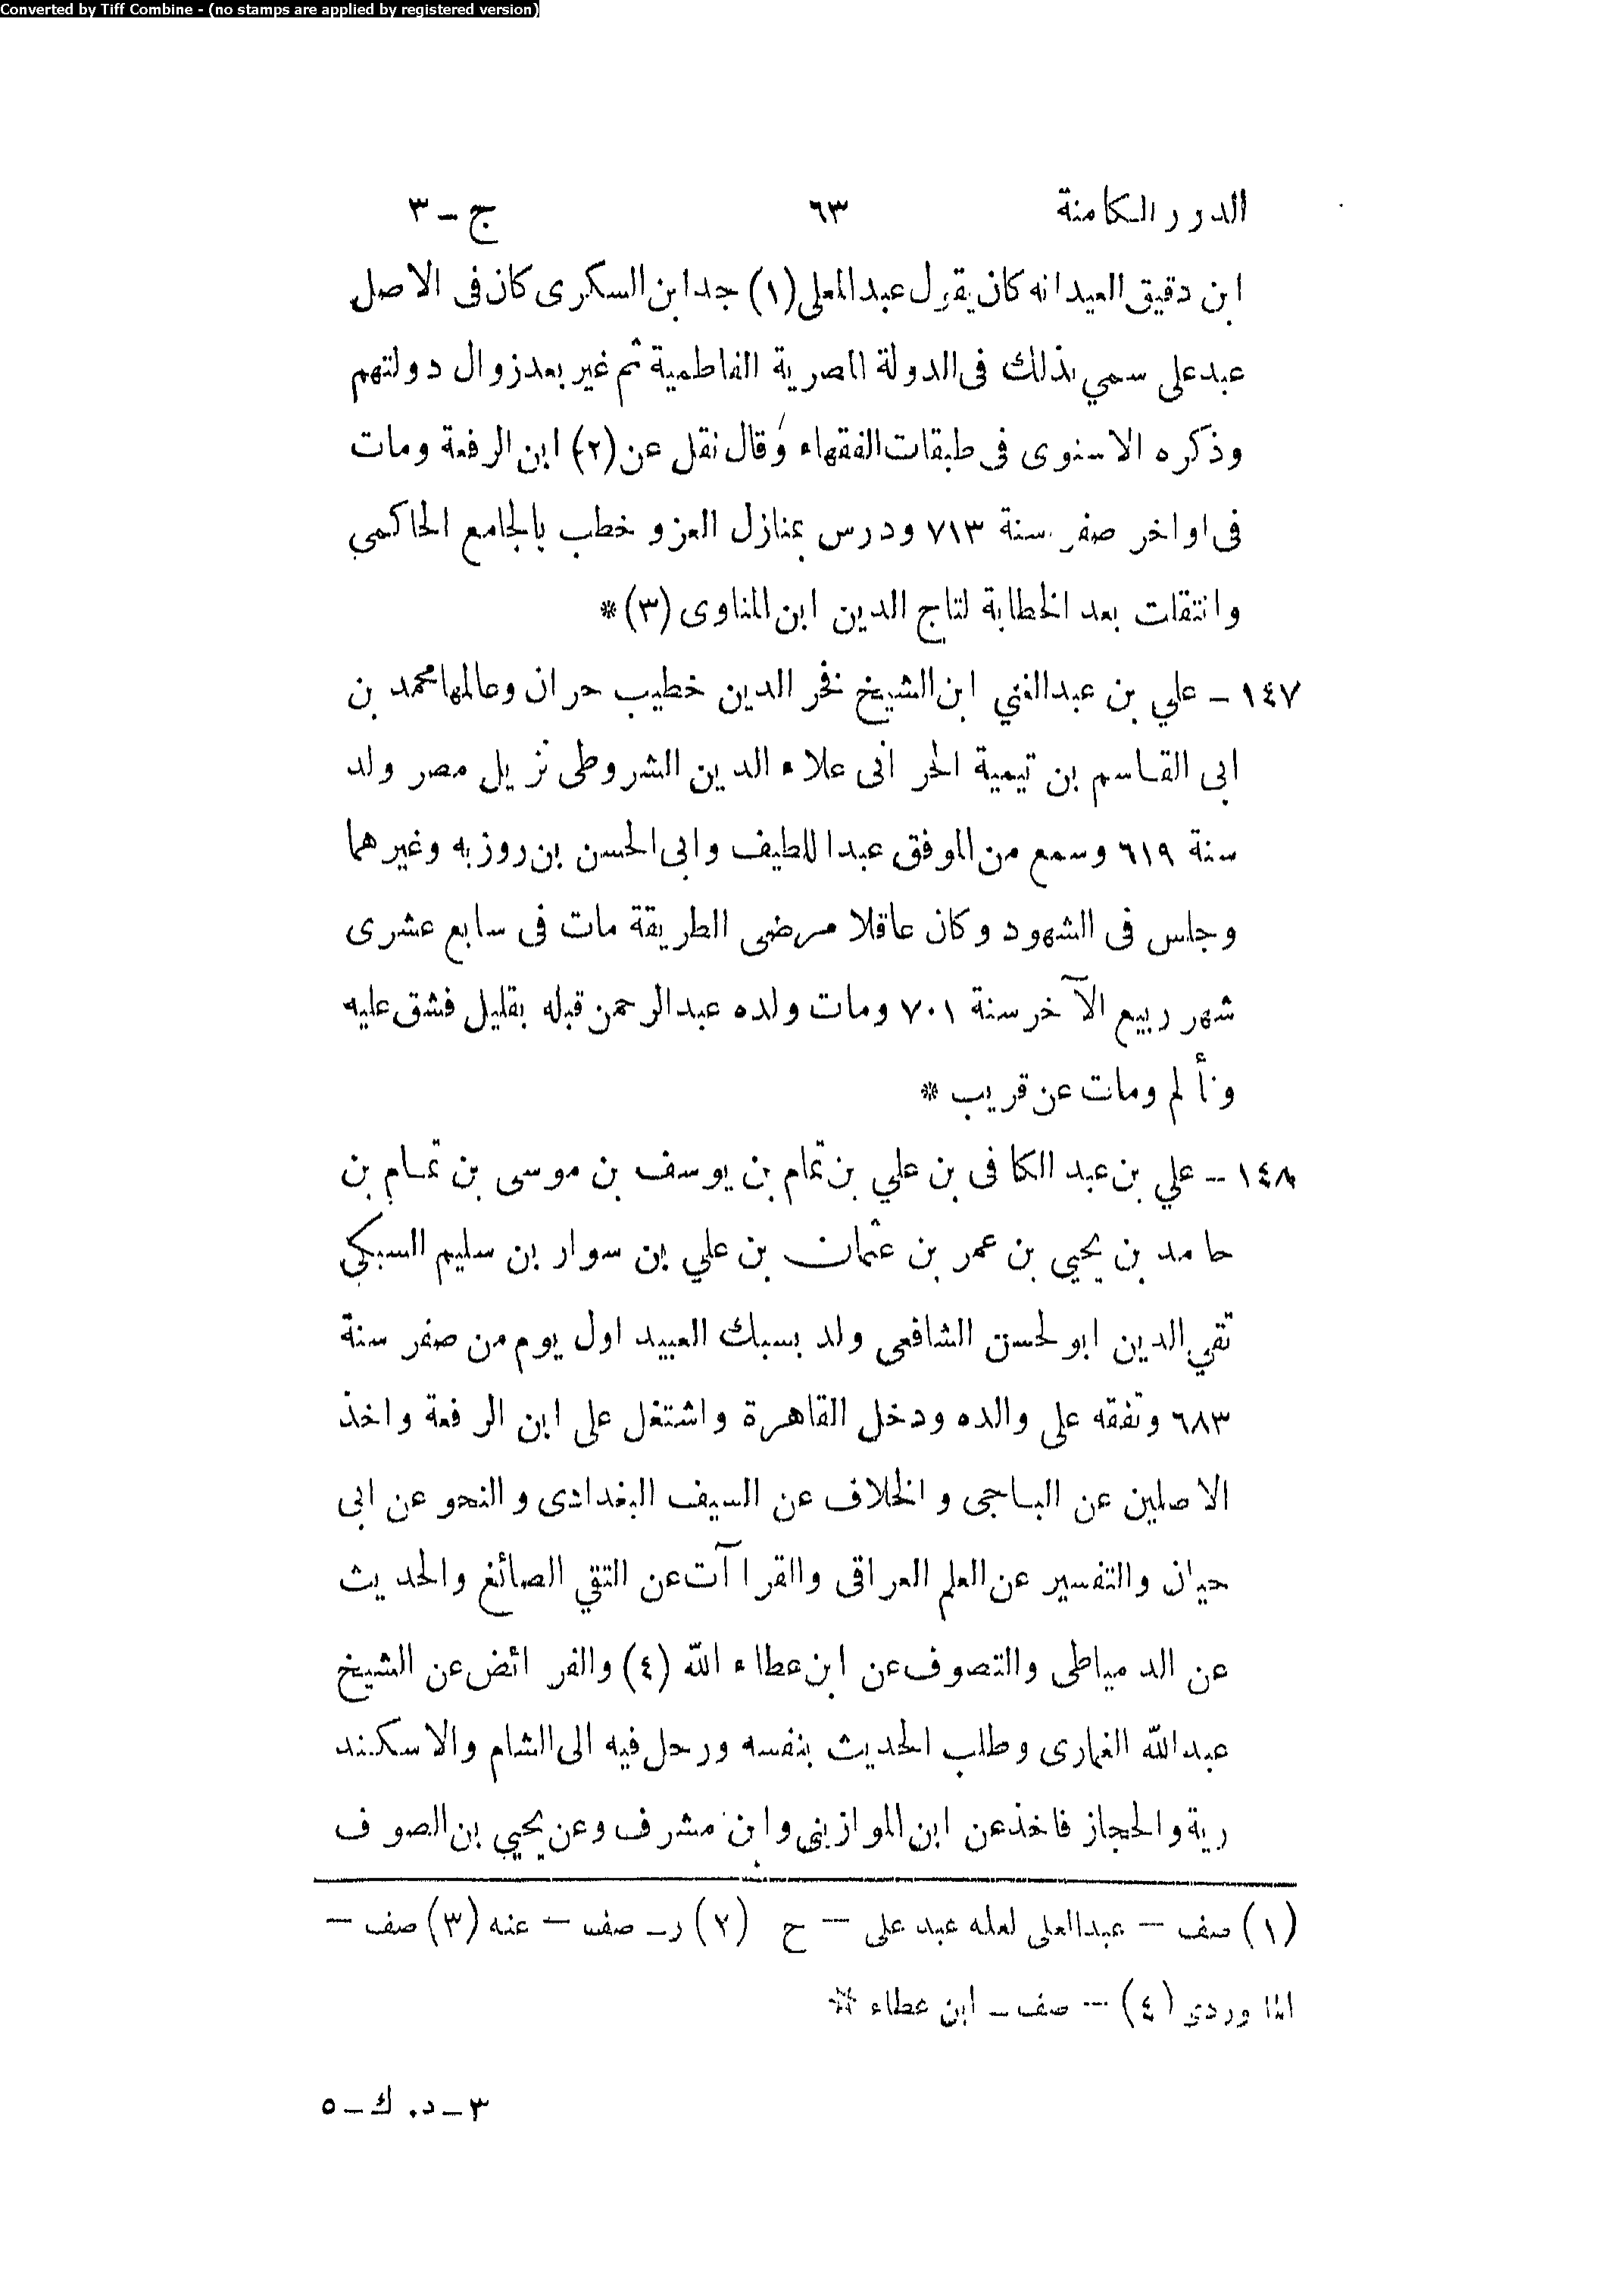 Converted by Tiff Combine - (no stamps are applied by registered version)
الدرر الكامنة ٦٣ ج - ٣
ابن دقيق العيد انه كان يقول عبد المعلى (١) جد ابن السكرى كان فى الاصل
عبد على سمي بذلك فى الدولة المصرية الفاطمية ثم غير بعد زوال دولتهم
وذكره الاسنوى فى طبقات الفقهاء وقال نقل عن (٢) ابن الرفعة ومات
فى اواخر صفر سنة ٧١٣ ودرس بمنازل العز وخطب بالجامع الحاكمي
وانتقلت بعد الخطابة لتاج الدين ابن المناوى (٣) *
١٤٧ - علي بن عبد الغني ابن الشيخ فخر الدين خطيب حران وعالمها محمد بن
ابى القاسم بن تيمية الحرانى علاء الدين الشروطى نزيل مصر ولد
سنة ٦١٩ وسمع من الموفق عبد اللطيف وابى الحسن بن روزبه وغيرهما
وجلس فى الشهود وكان عاقلا مرضى الطريقة مات فى سابع عشرى
شهر ربيع الآخر سنة ٧٠١ ومات ولده عبد الرحمن قبله بقليل فشق عليه
وتألم ومات عن قريب *
١٤٨ - علي بن عبد الكافى بن علي بن تمام بن يوسف بن موسى بن تمام بن
حامد بن يحيي بن عمر بن عثمان بن علي بن سوار بن سليم السبكي
تقي الدين ابو لحسن الشافعى ولد بسبك العبيد اول يوم من صفر سنة
٦٨٣ وتفقه على والده ودخل القاهرة واشتغل على ابن الرفعة واخذ
الاصلين عن الباجى والخلاف عن السيف البغدادى والنحو عن ابى
حيان والتفسير عن العلم العراقى والقراآت عن التقي الصائغ والحديث
عن الدمياطى والتصوف عن ابن عطاء الله (٤) والفرائض عن الشيخ
عبد الله الغمارى وطلب الحديث بنفسه ورحل فيه الى الشام والاسكند
رية والحجاز فاخذ عن ابن الموازينى وابن مشرف وعن يحيي بن الصوف
(١) صف - عبد العلى لعله عبد على - ح (٢) ر - صف - عنه (٣) صف -
الماوردى (٤) - صف - ابن عطاء *
٣ - د. ك - ٥